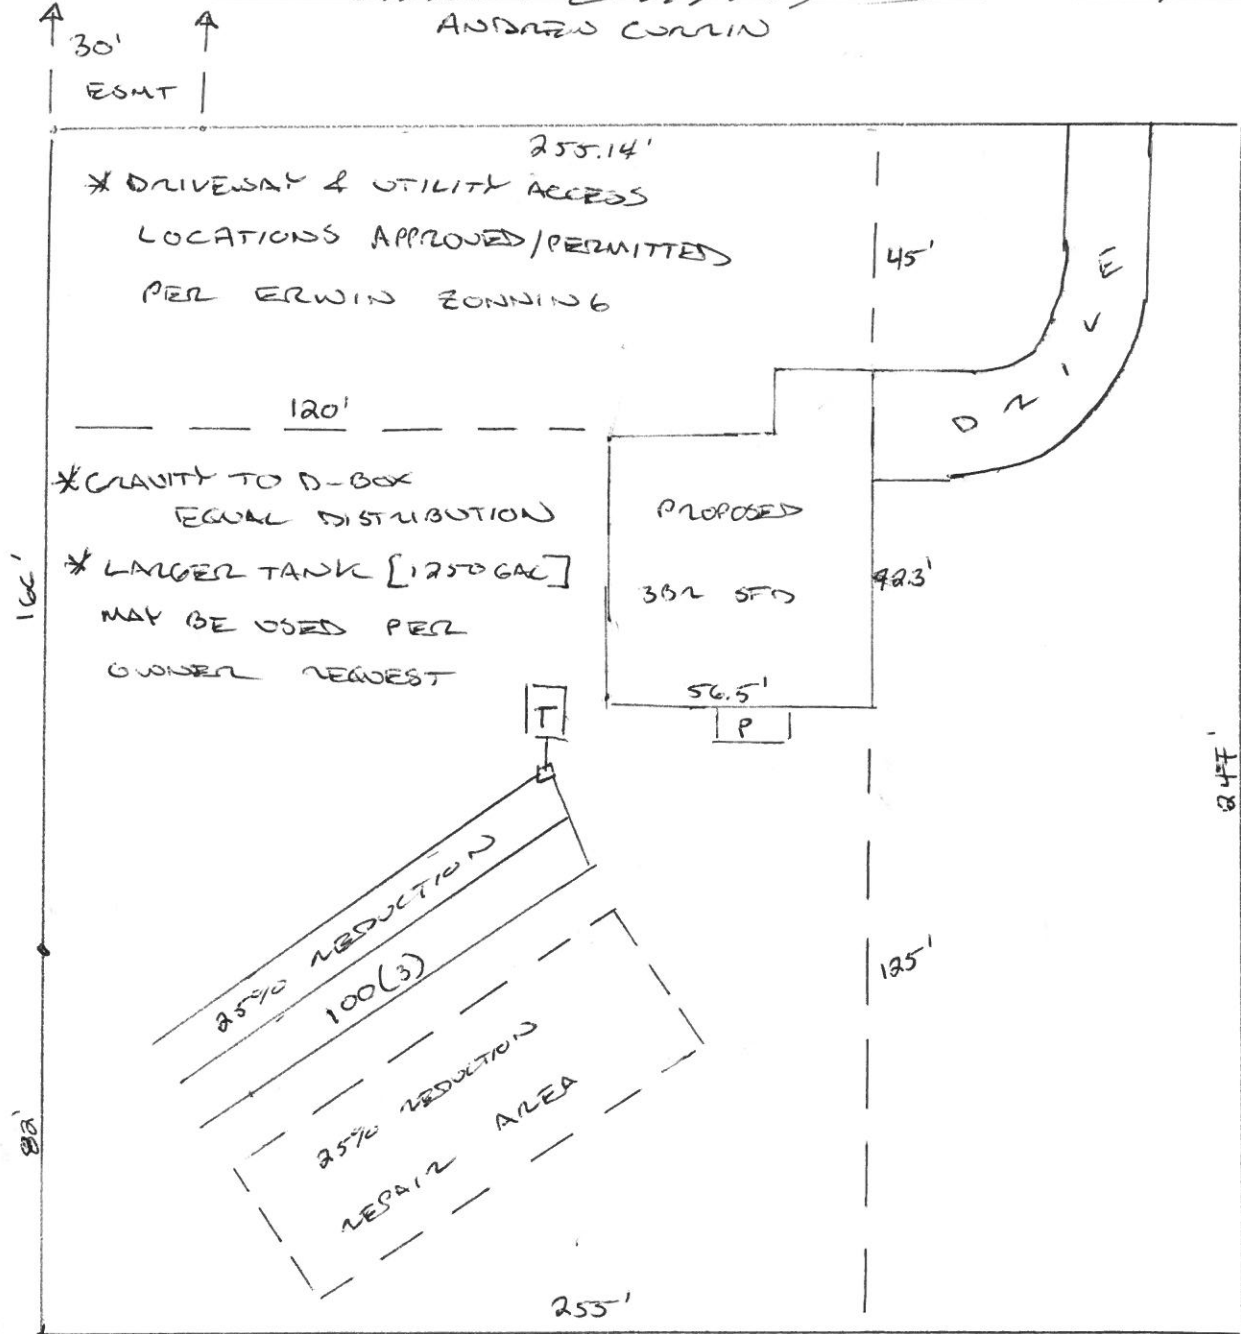 ANDREW CURRIN
30'
ESMT
255.14'
* DRIVEWAY & UTILITY ACCESS
LOCATIONS APPROVED/PERMITTED
PER ERWIN ZONNING
45'
DRIVE
120'
* GRAVITY TO D-BOX
EQUAL DISTRIBUTION
* LARGER TANK [1250 GAL]
MAY BE USED PER
OWNER REQUEST
PROPOSED
3BR SFD
56.5'
T
P
166'
247'
25% REDUCTION
100(3)
125'
25% REDUCTION
REPAIR AREA
82'
255'